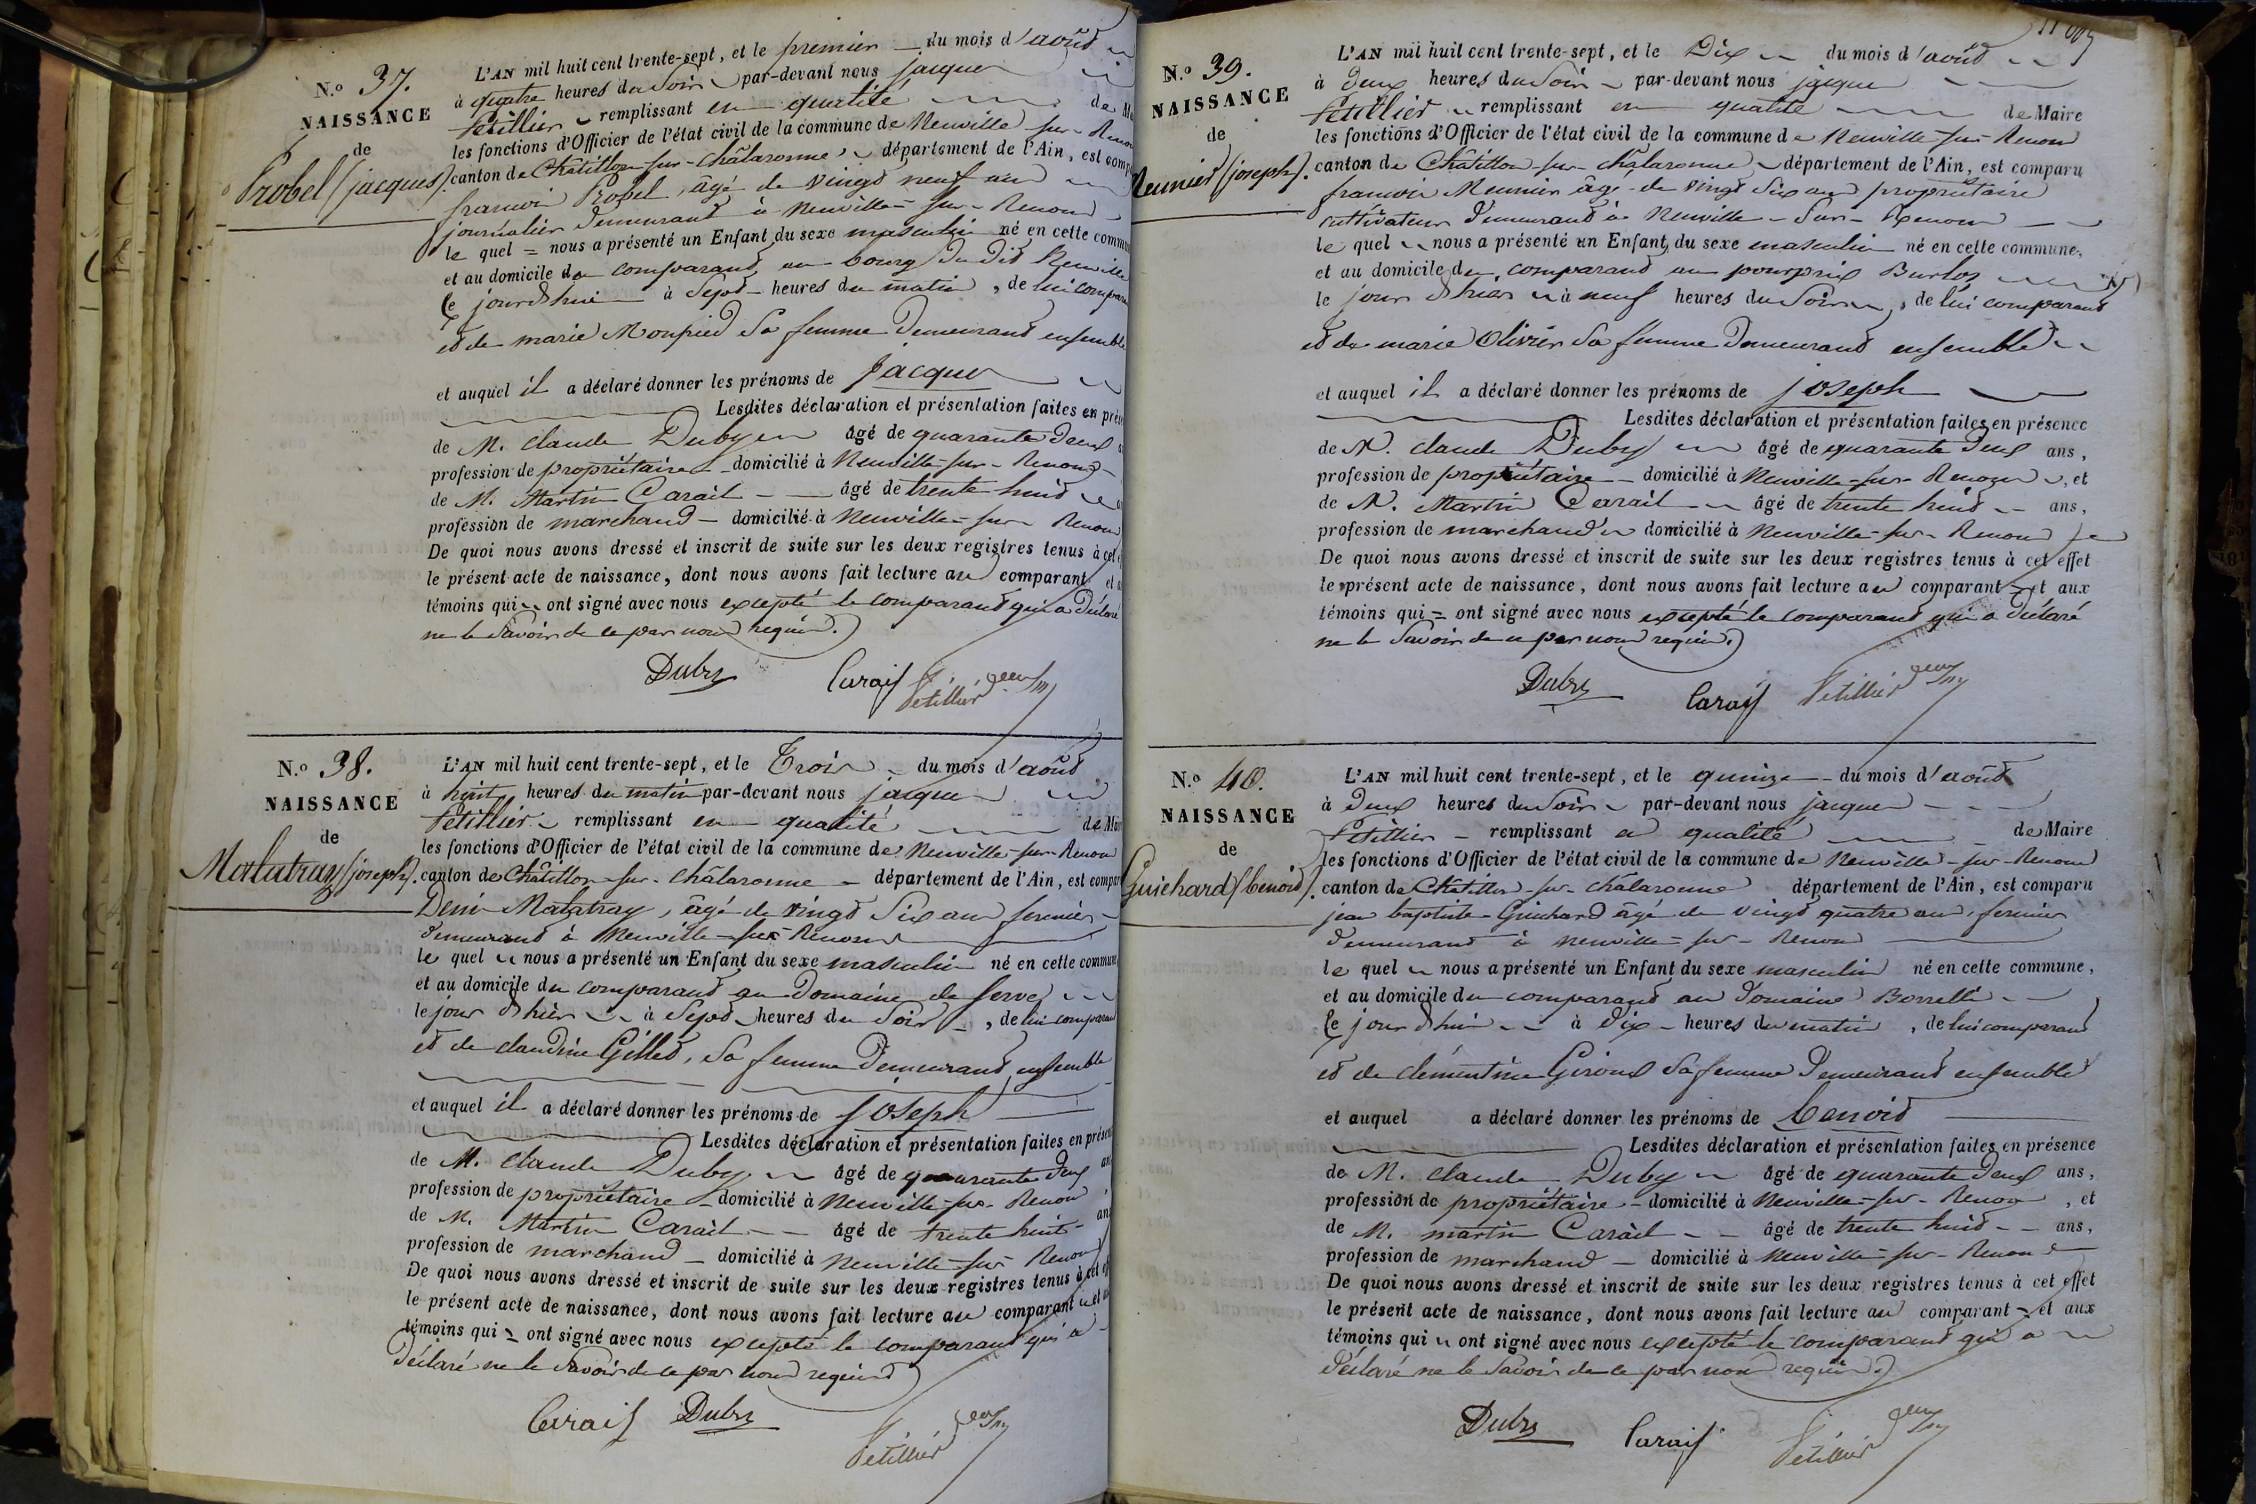 N.º 37.
NAISSANCE
de
Probel (jacques).
L'AN mil huit cent trente-sept, et le premier du mois d'août
à quatre heures du Soir par-devant nous jacques
Pétillier remplissant en qualité de
les fonctions d'Officier de l'état civil de la commune de Neuville-sur-Renom
canton de Châtillon-sur-châlaronne département de l'Ain, est
françois Probel, âgé de vingt neuf ans
journalier demeurant à Neuville-sur-Renom
le quel = nous a présenté un Enfant du sexe masculin né en cette
et au domicile du comparant au bourg du dit Neuville
le jourd'hui à Sept heures du matin, de lui
et de marie Monpied Sa femme demeurant ensemble
et auquel il a déclaré donner les prénoms de Jacques
Lesdites déclaration et présentation faites en
de M. claude Duby âgé de quarante deux
profession de propriétaire domicilié à Neuville-sur-Renom
de M. Martin Carait âgé de trente huit
profession de marchand domicilié à Neuville-sur-Renom
De quoi nous avons dressé et inscrit de suite sur les deux registres tenus à cet
le présent acte de naissance, dont nous avons fait lecture au comparant et
témoins qui ont signé avec nous excepté le comparant qui a déclaré
ne le Savoir de ce par nous requis.
Duby Carait Pétillier
N.º 38.
NAISSANCE
de
Malatray (joseph).
L'AN mil huit cent trente-sept, et le Trois du mois d'août
à huit heures du matin par-devant nous jacques
Pétillier remplissant en qualité de
les fonctions d'Officier de l'état civil de la commune de Neuville-sur-Renom
canton de Châtillon-sur-châlaronne département de l'Ain, est
Denis Malatray, âgé de vingt Six ans fermier
demeurant à Neuville-sur-Renom
le quel nous a présenté un Enfant du sexe masculin né en cette commune
et au domicile du comparant au Domaine de Serve
le jour d'hier à Sept heures du Soir, de lui comparant
et de claudine Gillet, Sa femme demeurant ensemble
et auquel il a déclaré donner les prénoms de joseph
Lesdites déclaration et présentation faites en
de M. claude Duby âgé de quarante deux
profession de propriétaire domicilié à Neuville-sur-Renom
de M. Martin Carait âgé de trente huit
profession de marchand domicilié à Neuville-sur-Renom
De quoi nous avons dressé et inscrit de suite sur les deux registres tenus à cet
le présent acte de naissance, dont nous avons fait lecture au comparant et
témoins qui = ont signé avec nous excepté le comparant qui a
déclaré ne le Savoir de ce par nous requis
Carait Duby Pétillier
N.º 39.
NAISSANCE
de
Meunier (joseph).
L'AN mil huit cent trente-sept, et le Dix du mois d'août
à deux heures du Soir par-devant nous jacques
Pétillier remplissant en qualité de Maire
les fonctions d'Officier de l'état civil de la commune de Neuville-sur-Renom
canton de Châtillon-sur-châlaronne département de l'Ain, est comparu
françois Meunier âgé de vingt Six ans propriétaire
cultivateur demeurant à Neuville-Sur-Renom
le quel nous a présenté un Enfant du sexe masculin né en cette commune,
et au domicile du comparant au pourprix Burlos
le jour d'hier à neuf heures du Soir, de lui comparant
et de marie Olivier Sa femme demeurant ensemble
et auquel il a déclaré donner les prénoms de joseph
Lesdites déclaration et présentation faites en présence
de M. claude Duby âgé de quarante deux ans,
profession de propriétaire domicilié à Neuville-sur-Renom, et
de M. Martin Carait âgé de trente huit ans,
profession de marchand domicilié à Neuville-sur-Renom
De quoi nous avons dressé et inscrit de suite sur les deux registres tenus à cet effet
le présent acte de naissance, dont nous avons fait lecture au comparant et aux
témoins qui = ont signé avec nous excepté le comparant qui a déclaré
ne le Savoir de ce par nous requis.
Duby Carait Pétillier
N.º 40.
NAISSANCE
de
Guichard (benoit).
L'AN mil huit cent trente-sept, et le quinze du mois d'août
à deux heures du Soir par-devant nous jacques
Pétillier remplissant en qualité de Maire
les fonctions d'Officier de l'état civil de la commune de Neuville-sur-Renom
canton de Châtillon-sur-châlaronne département de l'Ain, est comparu
jean baptiste Guichard âgé de vingt quatre ans, fermier
demeurant à neuville-sur-Renom
le quel nous a présenté un Enfant du sexe masculin né en cette commune,
et au domicile du comparant au domaine Borrelli
le jourd'hui à dix heures du matin, de lui comparant
et de clémentine Giroud Sa femme demeurant ensemble
et auquel a déclaré donner les prénoms de benoit
Lesdites déclaration et présentation faites en présence
de M. claude Duby âgé de quarante deux ans,
profession de propriétaire domicilié à Neuville-sur-Renom, et
de M. martin Carait âgé de trente huit ans,
profession de marchand domicilié à Neuville-sur-Renom
De quoi nous avons dressé et inscrit de suite sur les deux registres tenus à cet effet
le présent acte de naissance, dont nous avons fait lecture au comparant et aux
témoins qui ont signé avec nous excepté le comparant qui a
déclaré ne le Savoir de ce par nous requis.
Duby Carait Pétillier